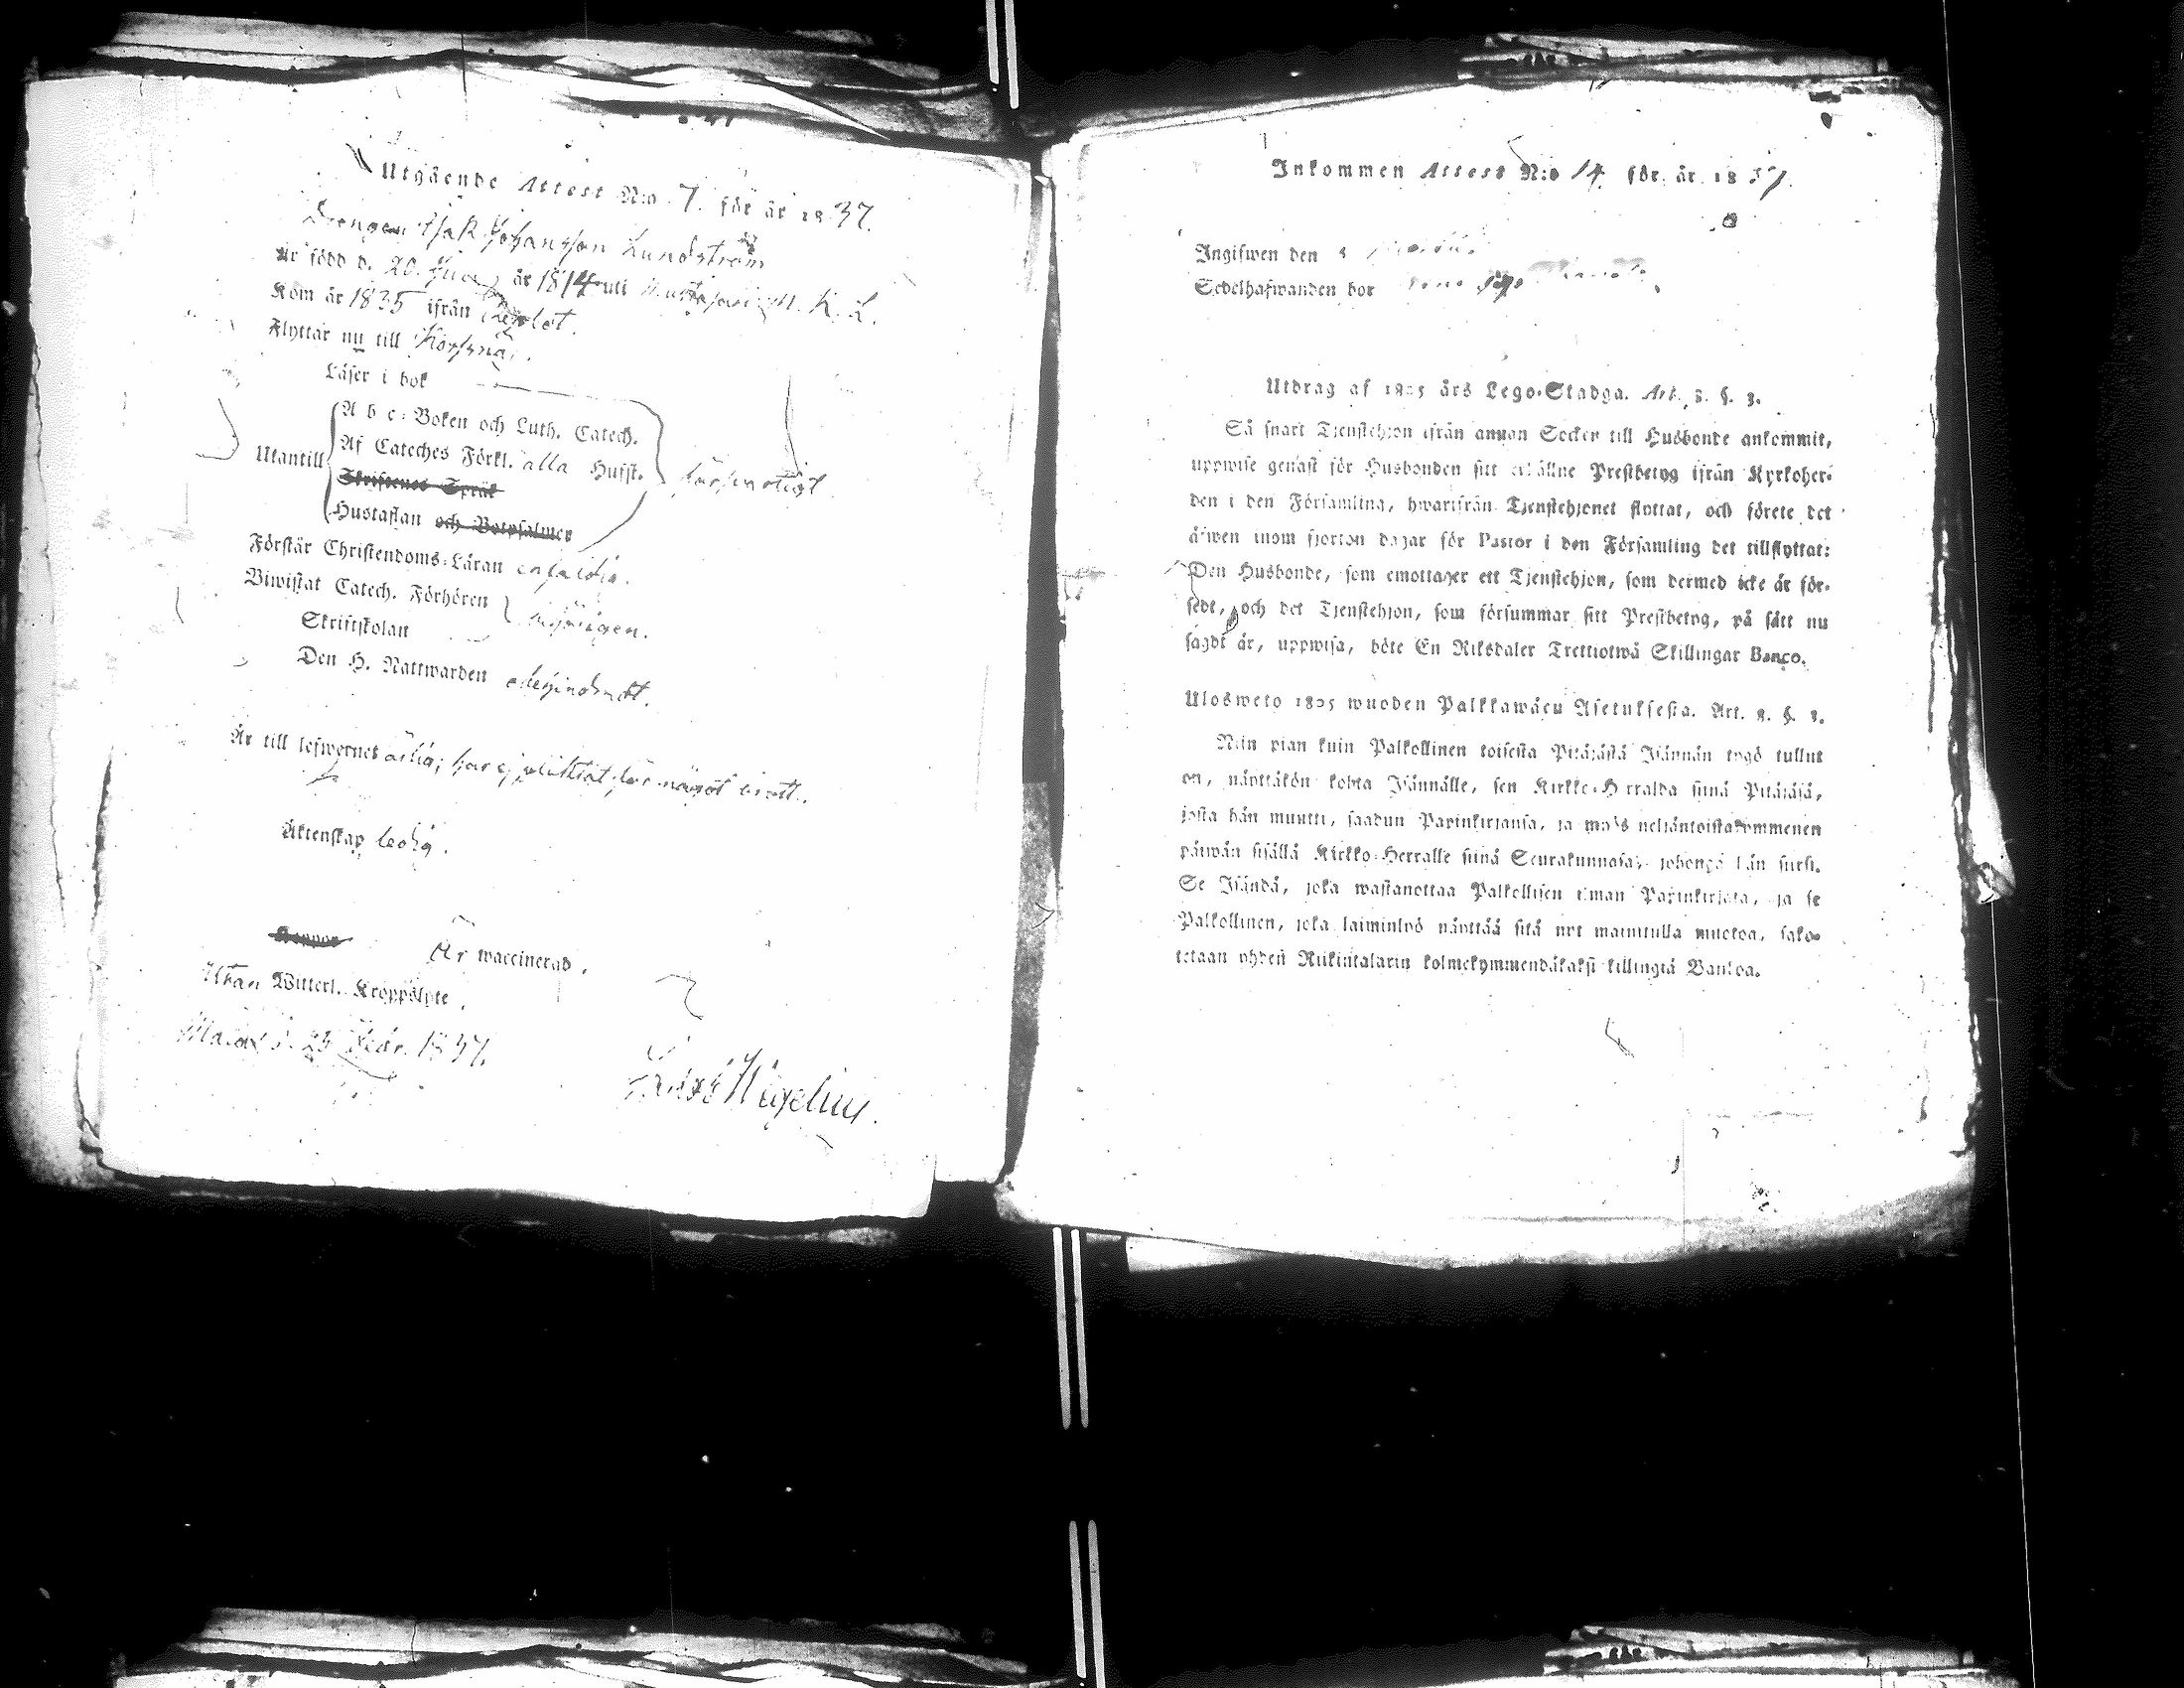 Utgående Attest N:o 7. för år 1837.
Drengen Isak Johansson Lundström
Är född d. 20. år 1814 uti
Kom år 1835 ifrån
Flyttar nu till Korsnäs.
Läser i bok
A b c-Boken och Luth. Catech.
Utantill Af Cateches Förkl. alla Hufst. försvarligt
Skriftenes Språk
Hustaflan och Botpsalmer
Förstår Christendoms-Läran enfaldig.
Biwistat Catech. Förhören
Skriftskolan
Den H. Nattwarden obehindradt.
Är till lefwernet ärlig; har ej för något brott.
Äktenskap ledig.
Koppor Är waccinerad.
Utan Witterl. Kroppslyte.
Malax d. 25 Febr. 1837.
Wegelius.
Inkommen Attest N:o 14 för år 1837.
Ingifwen den
Sedelhafwanden bor
Utdrag af 1805 års Lego-Stadga. Art. 3. §. 3.
Så snart Tjenstehjon ifrån annan Socken till Husbonde ankommit,
uppwise genast för Husbonden sitt erhållne Prestbetyg ifrån Kyrkoher-
den i den Församling, hwarifrån Tjenstehjonet flyttat, och förete det
äfwen inom fjorton dagar för Pastor i den Församling det tillflyttat:
Den Husbonde, som emottager ett Tjenstehjon, som dermed icke är för-
sedt, och det Tjenstehjon, som försummar sitt Prestbetyg, på sätt nu
sagdt är, uppwisa, böte En Riksdaler Trettiotwå Skillingar Banco.
Ulosweto 1805 wuoden Palkkawäen Asetuksesta. Art. 3. §. 3.
Niin pian kuin Palkollinen toisesta Pitäjästä Isännän tygö tullut
on, näyttäkön kohta Isännälle, sen Kirkko-Herralda siinä Pitäjäsä,
josta hän muutti, saadun Papinkirjansa, ja myös neljäntoistakymmenen
päiwän sisällä Kirkko-Herralle siinä Seurakunnasa, johonga hän siirsi.
Se Isändä, joka wastanottaa Palkollisen ilman Papinkirjata, ja se
Palkollinen, joka laiminlyö näyttää sitä nyt mainitulla muotoa, sako-
tetaan yhden Riikintalarin kolmekymmendäkaksi killingiä Bankoa.